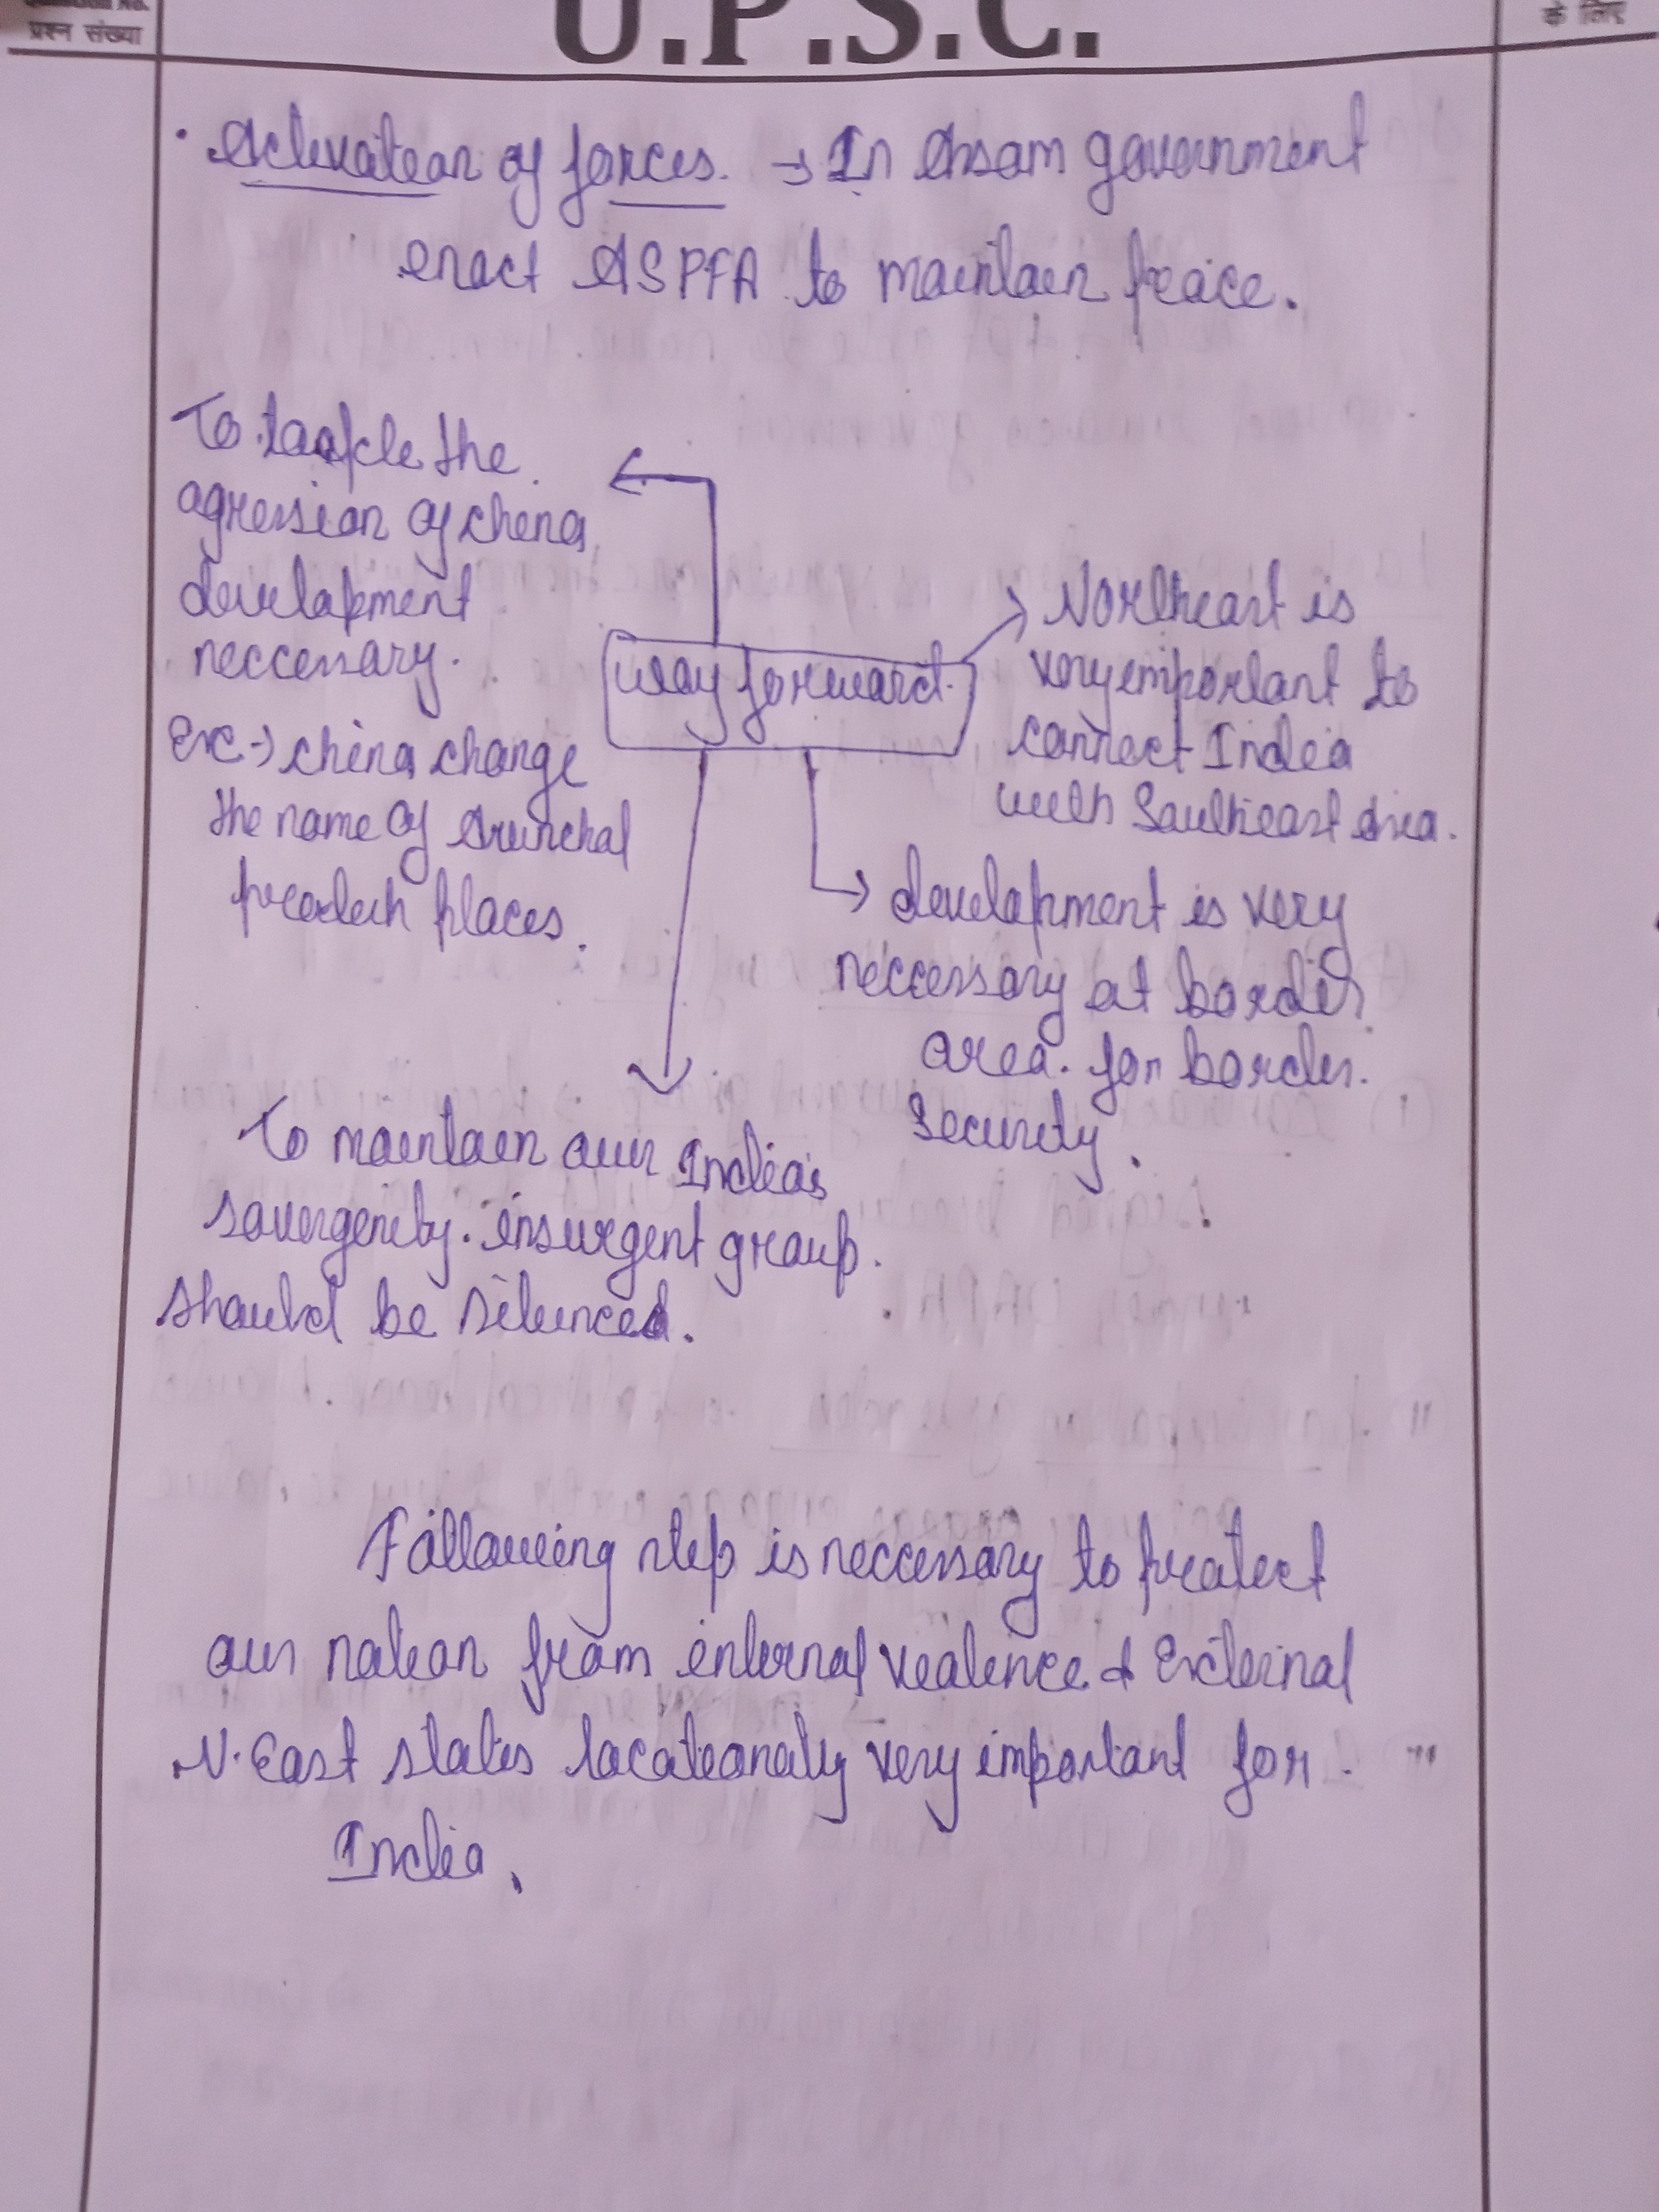 प्रश्न संख्या
U.P.S.C.
के लिए
• Activation of forces. → In Assam government
enact ASPFA to maintain peace.
To tackle the
agression of china
development
neccessary.
Ex → china change
the name of Arunchal
pradesh places.
way forward.
Northeast is
very important to
connect India
with Southeast Asia.
development is very
neccessary at border
area. for border.
Security.
To maintain our India's
sovergenity. insurgent group.
should be silenced.
Following step is neccessary to protect
our nation from internal voilence & External
N. East states locationally very important for
India.